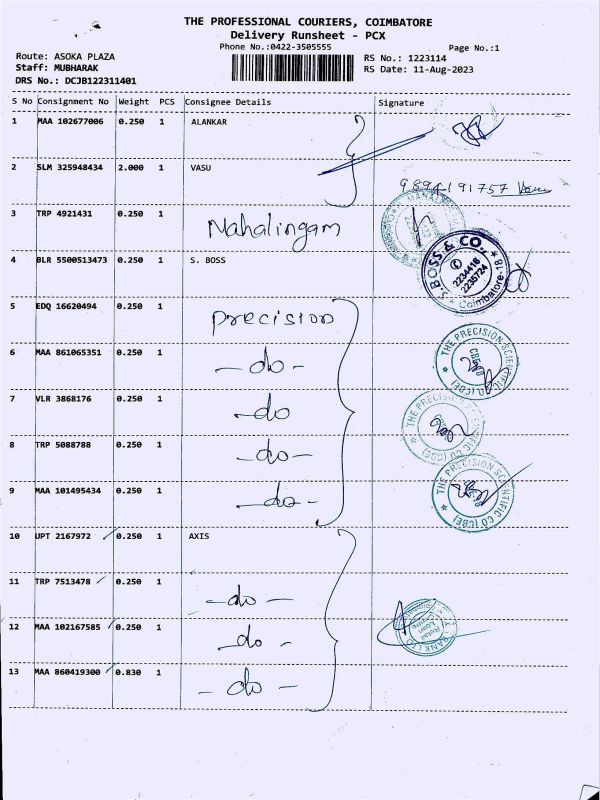 THE PROFESSIONAL COURIERS, COIMBATORE
Delivery Runsheet - PCX
Phone No.:0422-3505555 Page No.:1
Route: ASOKA PLAZA RS No.: 1223114
Staff: MUBHARAK RS Date: 11-Aug-2023
DRS No.: DCJB122311401
S No Consignment No Weight PCS Consignee Details Signature
1 MAA 102677006 0.250 1 ALANKAR
2 SLM 325948434 2.000 1 VASU
9894191757 Vasu
3 TRP 4921431 0.250 1 Mahalingam
4 BLR 5500513473 0.250 1 S. BOSS
S. BOSS & CO.
2234418
2235724
Coimbatore-18
5 EDQ 16620494 0.250 1 Precision
6 MAA 861065351 0.250 1 -do-
THE PRECISION SCIENTIFIC CO (CBE)
7 VLR 3868176 0.250 1 -do
THE PRECISION SCIENTIFIC CO (CBE)
8 TRP 5088788 0.250 1 -do-
9 MAA 101495434 0.250 1 -do-
THE PRECISION SCIENTIFIC CO (CBE)
10 UPT 2167972 0.250 1 AXIS
11 TRP 7513478 0.250 1 -do-
12 MAA 102167585 0.250 1 -do-
13 MAA 860419300 0.830 1 -do-